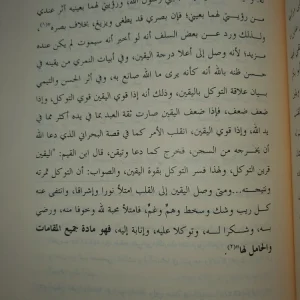 مـن رؤيتـي لهما بعيني؛ فإن بصري قد يطغى ويزيغ، بخلاف بصره"(٣١٥).
ولـذلك ورد عـن بعض السلف أنه لو أخبر أنه سيموت لم يكن عنده
مزيد؛ لأنه وصل إلى أعلا درجة اليقين، وفي أبيات النمري من يقينه في
حسن ظنه بالله أنه كأنه يرى ما الله صانع به، وفي أثر الحسن والتيمي
بيان علاقة التوكل باليقين، وذلك أنه إذا قوي اليقين قوي التوكل، وإذا
ضعف ضعف، فإذا ضعف اليقين صارت ثقة العبد بما في يده أكثر مما في
يد الله، وإذا قوي اليقين، القلب الأمر كما في قصة البحراني الذي دعا الله
أن يخـرجه من السجن، فخرج كما دعا وتيقن، قال ابن القيم: "اليقين
قرين التوكل، ولهذا فسر التوكل بقوة اليقين، والصواب: أن التوكل ثمرته
ونتيجـته...ومتى وصل اليقين إلى القلب امتلأ نورا وإشراقا، وانتفى عنه
كـل ريب وشك وسخط وهمٍّ وغمٍّ، فامتلأ محبة لله وخوفا منه، ورضي
بـــه، وشـــكرا لـــه، وتوكلا عليه، وإنابة إليه، فهو مادة جميع المقامات
والحامل لها"